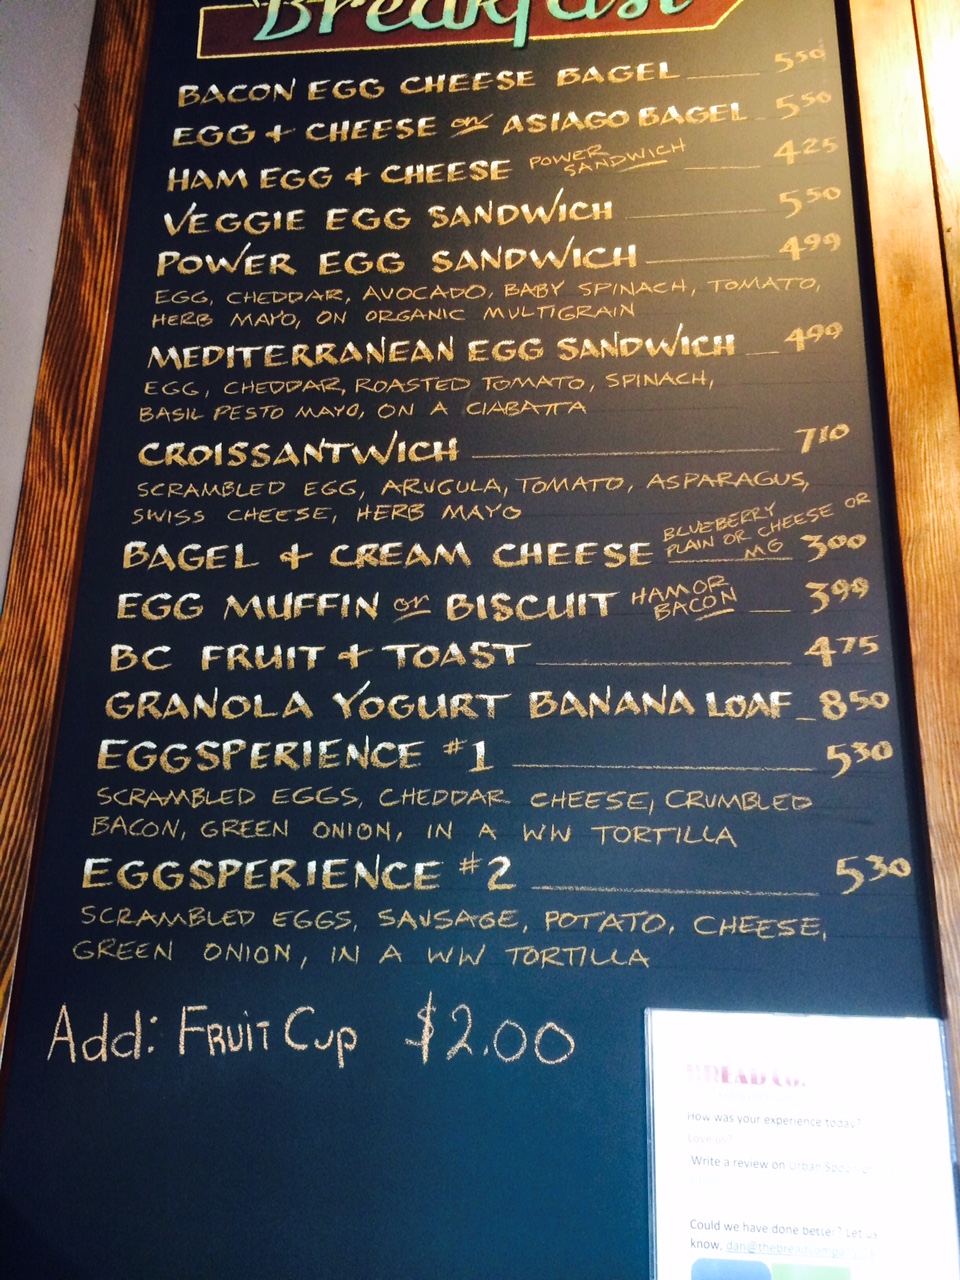 Breakfast
BACON EGG CHEESE BAGEL 5.50
EGG + CHEESE on ASIAGO BAGEL 5.50
HAM EGG + CHEESE POWER SANDWICH 4.25
VEGGIE EGG SANDWICH 5.50
POWER EGG SANDWICH 4.99
EGG, CHEDDAR, AVOCADO, BABY SPINACH, TOMATO,
HERB MAYO, ON ORGANIC MULTIGRAIN
MEDITERRANEAN EGG SANDWICH 4.99
EGG, CHEDDAR, ROASTED TOMATO, SPINACH,
BASIL PESTO MAYO, ON A CIABATTA
CROISSANTWICH 7.10
SCRAMBLED EGG, ARUGULA, TOMATO, ASPARAGUS,
SWISS CHEESE, HERB MAYO
BAGEL + CREAM CHEESE BLUEBERRY PLAIN OR CHEESE OR MG 3.00
EGG MUFFIN or BISCUIT HAM OR BACON 3.99
BC FRUIT + TOAST 4.75
GRANOLA YOGURT BANANA LOAF 8.50
EGGSPERIENCE #1 5.30
SCRAMBLED EGGS, CHEDDAR CHEESE, CRUMBLED
BACON, GREEN ONION, IN A WW TORTILLA
EGGSPERIENCE #2 5.30
SCRAMBLED EGGS, SAUSAGE, POTATO, CHEESE,
GREEN ONION, IN A WW TORTILLA
Add: FRUIT CUP $2.00
BREAD CO.
How was your experience today?
Love us?
Write a review on Urban
Could we have done better? Let us
know,